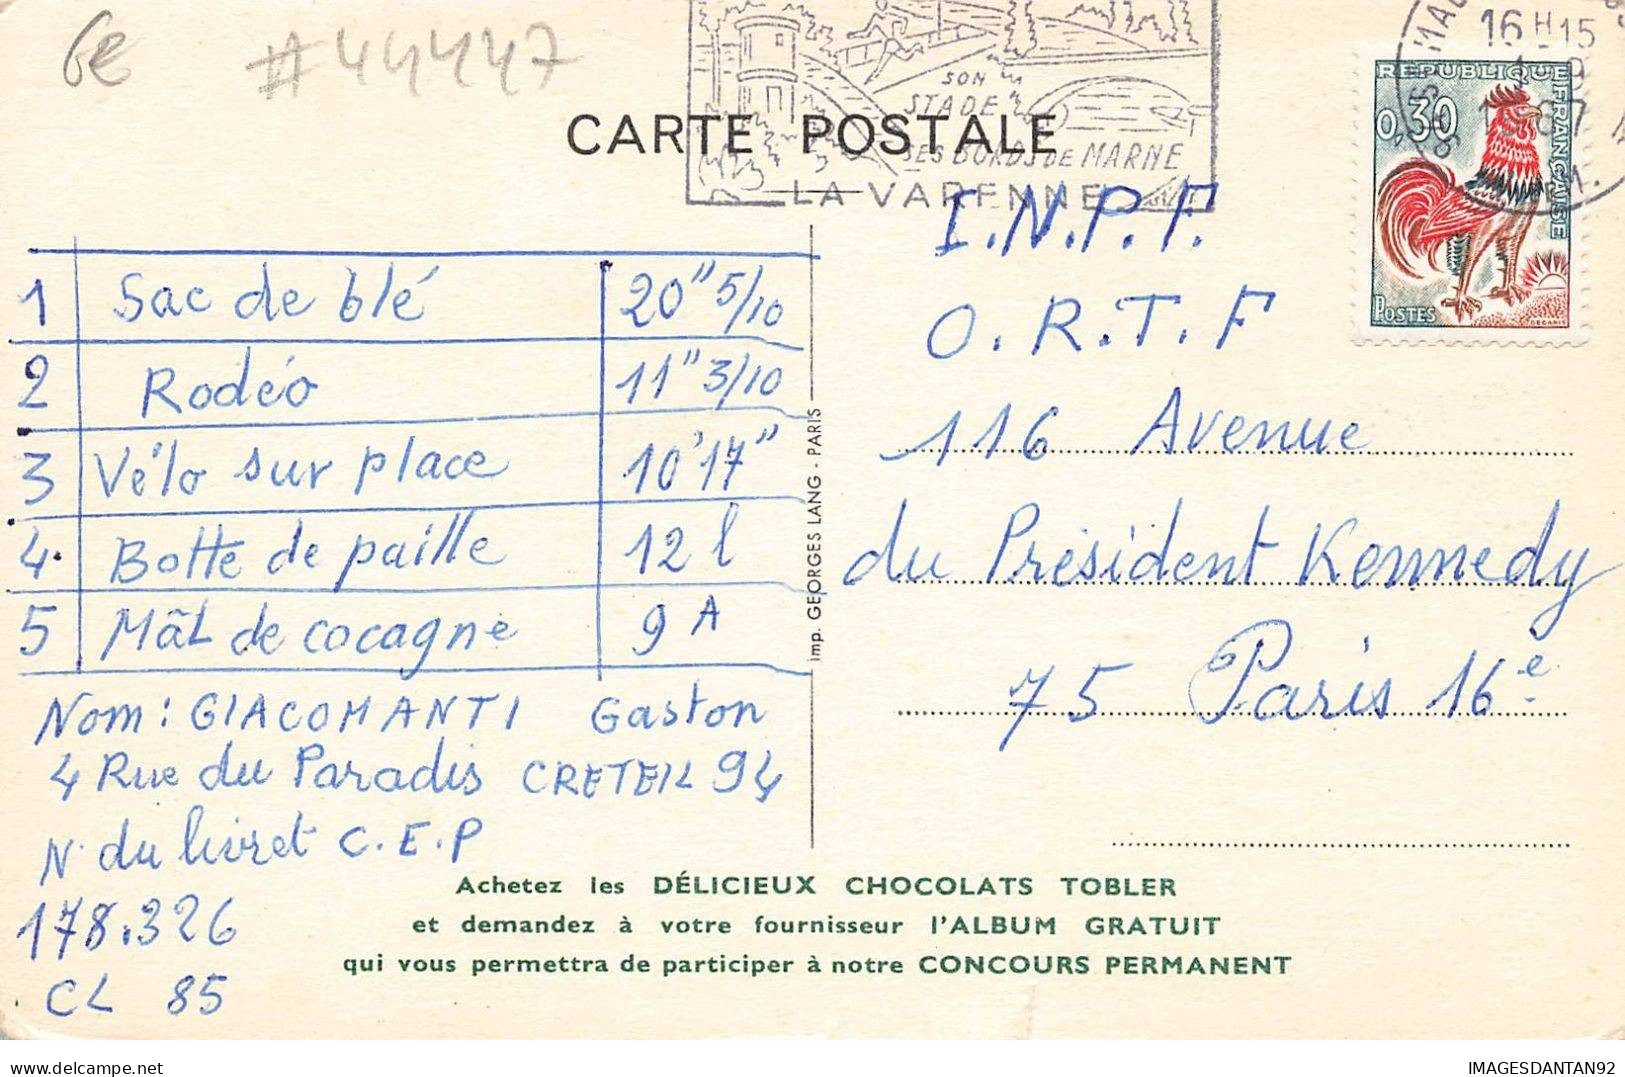 6€ #44447
SON
STADE
SES BORDS DE MARNE
LA VARENNE
16H15
RÉPUBLIQUE FRANÇAISE
0,30
POSTES
DECARIS
CARTE POSTALE
1 Sac de blé 20" 5/10
2 Rodéo 11" 3/10
3 Vélo sur place 10'17"
4. Botte de paille 12 l
5 Mât de cocagne 9 A
Nom : GIACOMANTI Gaston
4 Rue du Paradis CRETEIL 94
N. du livret C.E.P
178.326
CL 85
imp. GEORGES LANG - PARIS
I.N.P.F.
O.R.T.F
116 Avenue
du Président Kennedy
75 Paris 16e
Achetez les DÉLICIEUX CHOCOLATS TOBLER
et demandez à votre fournisseur l'ALBUM GRATUIT
qui vous permettra de participer à notre CONCOURS PERMANENT
IMAGESDANTAN92